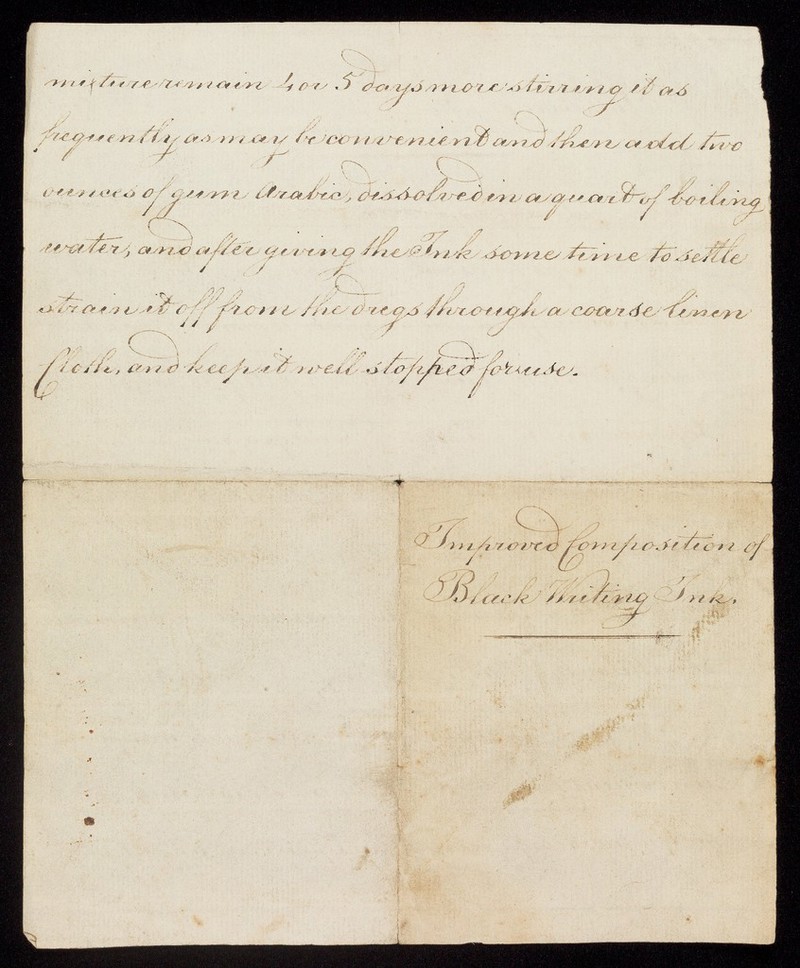 mixture remain 4 or 5 days more stirring it as
frequently as may be convenient and then add two
ounces of gum Arabic, dissolved in a quart of boiling
water, and after giving the Ink some time to settle
strain it off from the dregs through a coarse linen
Cloth, and keep it well stopped for use.
Improved Composition of
Black Writing Ink.